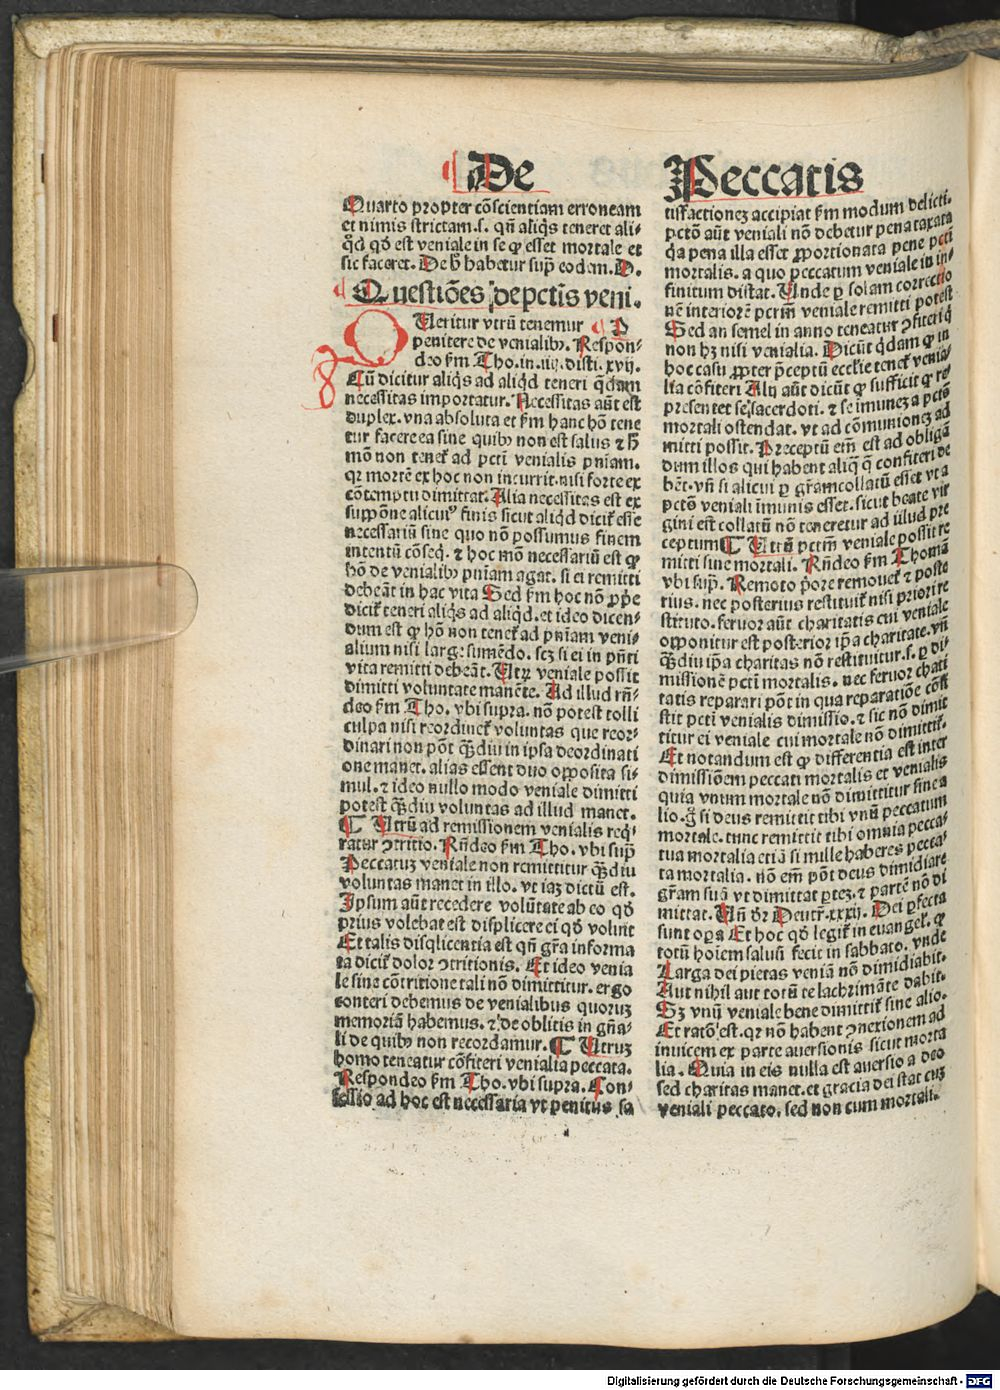 De Peccatis
Quarto propter cōscientiam erroneam
et nimis strictam.s. qn̄ aliq̇s teneret ali-
qd̛ qd̛ est veniale in se ꝙ esset mortale et
sic faceret. De h̄ habetur sup̄ eodem. D.
Questiōes de pctīs veni.
Ueritur vtrū tenemur P
penitere de venialibꝰ. Respon-
deo ẜm Tho.in.iiij.disti.xvij.
Cū dicitur aliq̇s ad aliqd̛ teneri q̄dam
necessitas importatur. Necessitas aūt est
duplex. vna absoluta et ẜm hanc hō tene
tur facere ea sine quibꝰ non est salus ⁊ h̄
mō non tenet̛ ad pctī venialis pniam.
qꝛ mortē ex hoc non incurrit.nisi forte ex
cōtemptu dimittat. Alia necessitas est ex
suppōne alicuiꝰ finis sicut aliqd̛ dicit̛ esse
necessariū sine quo nō possumus finem
intentū cōseq̄. ⁊ hoc mō necessariū est ꝙ
hō de venialibꝰ pniam agat. si ei remitti
debeāt in hac vita Sed ẜm hoc nō ꝓp̄e
dicit̛ teneri aliq̇s ad aliqd̛.et ideo dicen-
dum est ꝙ hō non tenet̛ ad pniam veni-
alium nisi large sumēdo. scꝫ si ei in pn̄ti
vita remitti debeāt. Utꝝ veniale possit
dimitti voluntate manēte. Ad illud rn̄-
deo ẜm Tho. vbi supra. nō potest tolli
culpa nisi reordinet̛ voluntas que reor-
dinari non pōt q̄ꝫdiu in ipsa deordinati
one manet. alias essent duo opposita si-
mul. ⁊ ideo nullo modo veniale dimitti
potest q̄ꝫdiu voluntas ad illud manet.
¶ Utrū ad remissionem venialis req̇-
ratur ↄtritio. Rn̄deo ẜm Tho. vbi sup̄
Peccatuꝫ veniale non remittitur q̄ꝫdiu
voluntas manet in illo. vt iaꝫ dictū est.
Ipsum aūt recedere volūtate ab eo qd̛
prius volebat est displicere ei qd̛ voluit
Et talis disqlicentia est qn̄ gr̄a informa
ta dicit̛ dolor ↄtritionis. Et ideo venia
le sine cōtritione tali nō dimittitur. ergo
conteri debemus de venialibus quoruꝫ
memoriā habemus. ⁊ de oblitis in gn̄a-
li de quibꝰ non recordamur. ¶ Utruꝫ
homo teneatur cōfiteri venialia peccata.
Respondeo ẜm Tho. vbi supra. Con-
fessio ad hoc est necessaria vt penitus sa
tisfactioneꝫ accipiat ẜm modum delicti.
pctō aūt veniali nō debetur pena taxata
q̇a pena illa esset ꝓportionata pene pctī
mortalis. a quo peccatum veniale in in-
finitum distat. Unde ꝑ solam correctio
nē interiorē pctm̄ veniale remitti potest
Sed an semel in anno teneatur ↄfiteri q̇
non hꝫ nisi venialia. Dicūt q̇dam ꝙ in
hoc casu ꝓpter p̄ceptū ecclie tenet̛ venia-
lia cōfiteri Alij aūt dicūt ꝙ sufficit ꝙ re-
presentet se sacerdoti. ⁊ se imuneꝫ a pctō
mortali ostendat. vt ad cōmunioneꝫ ad
mitti possit. Preceptū em̄ est ad obligā
dum illos qui habent aliq̄ q̄ confiteri de
bēt. vn̄ si alicui ꝑ gr̄am collatū esset vt a
pctō veniali īmunis esset. sicut beate vir
gini est collatū nō teneretur ad illud pre
ceptum ¶ Utrū pctm̄ veniale possit re
mitti sine mortali. Rn̄deo ẜm Thomā
vbi sup̄. Remoto p̊ore remouet̛ ⁊ poste
rius. nec posterius restituit̛ nisi priori re
stituto. feruor aūt charitatis cui veniale
opponitur est posterior ip̄a charitate. vn̄
q̄ꝫdiu ip̄a charitas nō restituitur.s. ꝑ di-
missionē pctī mortalis. nec feruor chari
tatis reparari pōt in qua reparatiōe cōsi
stit pctī venialis dimissio. ⁊ sic nō dimit
titur ei veniale cui mortale nō dimittit̛.
Et notandum est ꝙ differentia est inter
dimissiōem peccati mortalis et venialis
quia vnum mortale nō dimittitur sine a
lio. g̊ si deus remittit tibi vnū peccatum
mortale. tunc remittit tibi omnia pecca-
tua mortalia etiā si mille haberes pecca-
ta mortalia. nō em̄ pōt deus dimidiare
gr̄am suā vt dimittat ꝑteꝫ. ⁊ partē nō di
mittat. Un̄ dr̄ Deutr̄.xxxij. Dei ꝑfecta
sunt oꝑa Et hoc qd̛ legit̛ in euangel̛. ꝙ
totū hoiem saluū fecit in sabbato. vnde
Larga dei pietas veniā nō dimidiabit.
Aut nihil aut totū te lachrimāte dabit.
Sꝫ vnū veniale bene dimittit̛ sine alio.
Et ratō est. qꝛ nō habent ↄnexionem ad
inuicem ex parte auersionis sicut morta
lia. Quia in eis nulla est auersio a deo
sed charitas manet. et gracia dei stat cuꝫ
veniali peccato. sed non cum mortali.
Digitalisierung gefördert durch die Deutsche Forschungsgemeinschaft - DFG